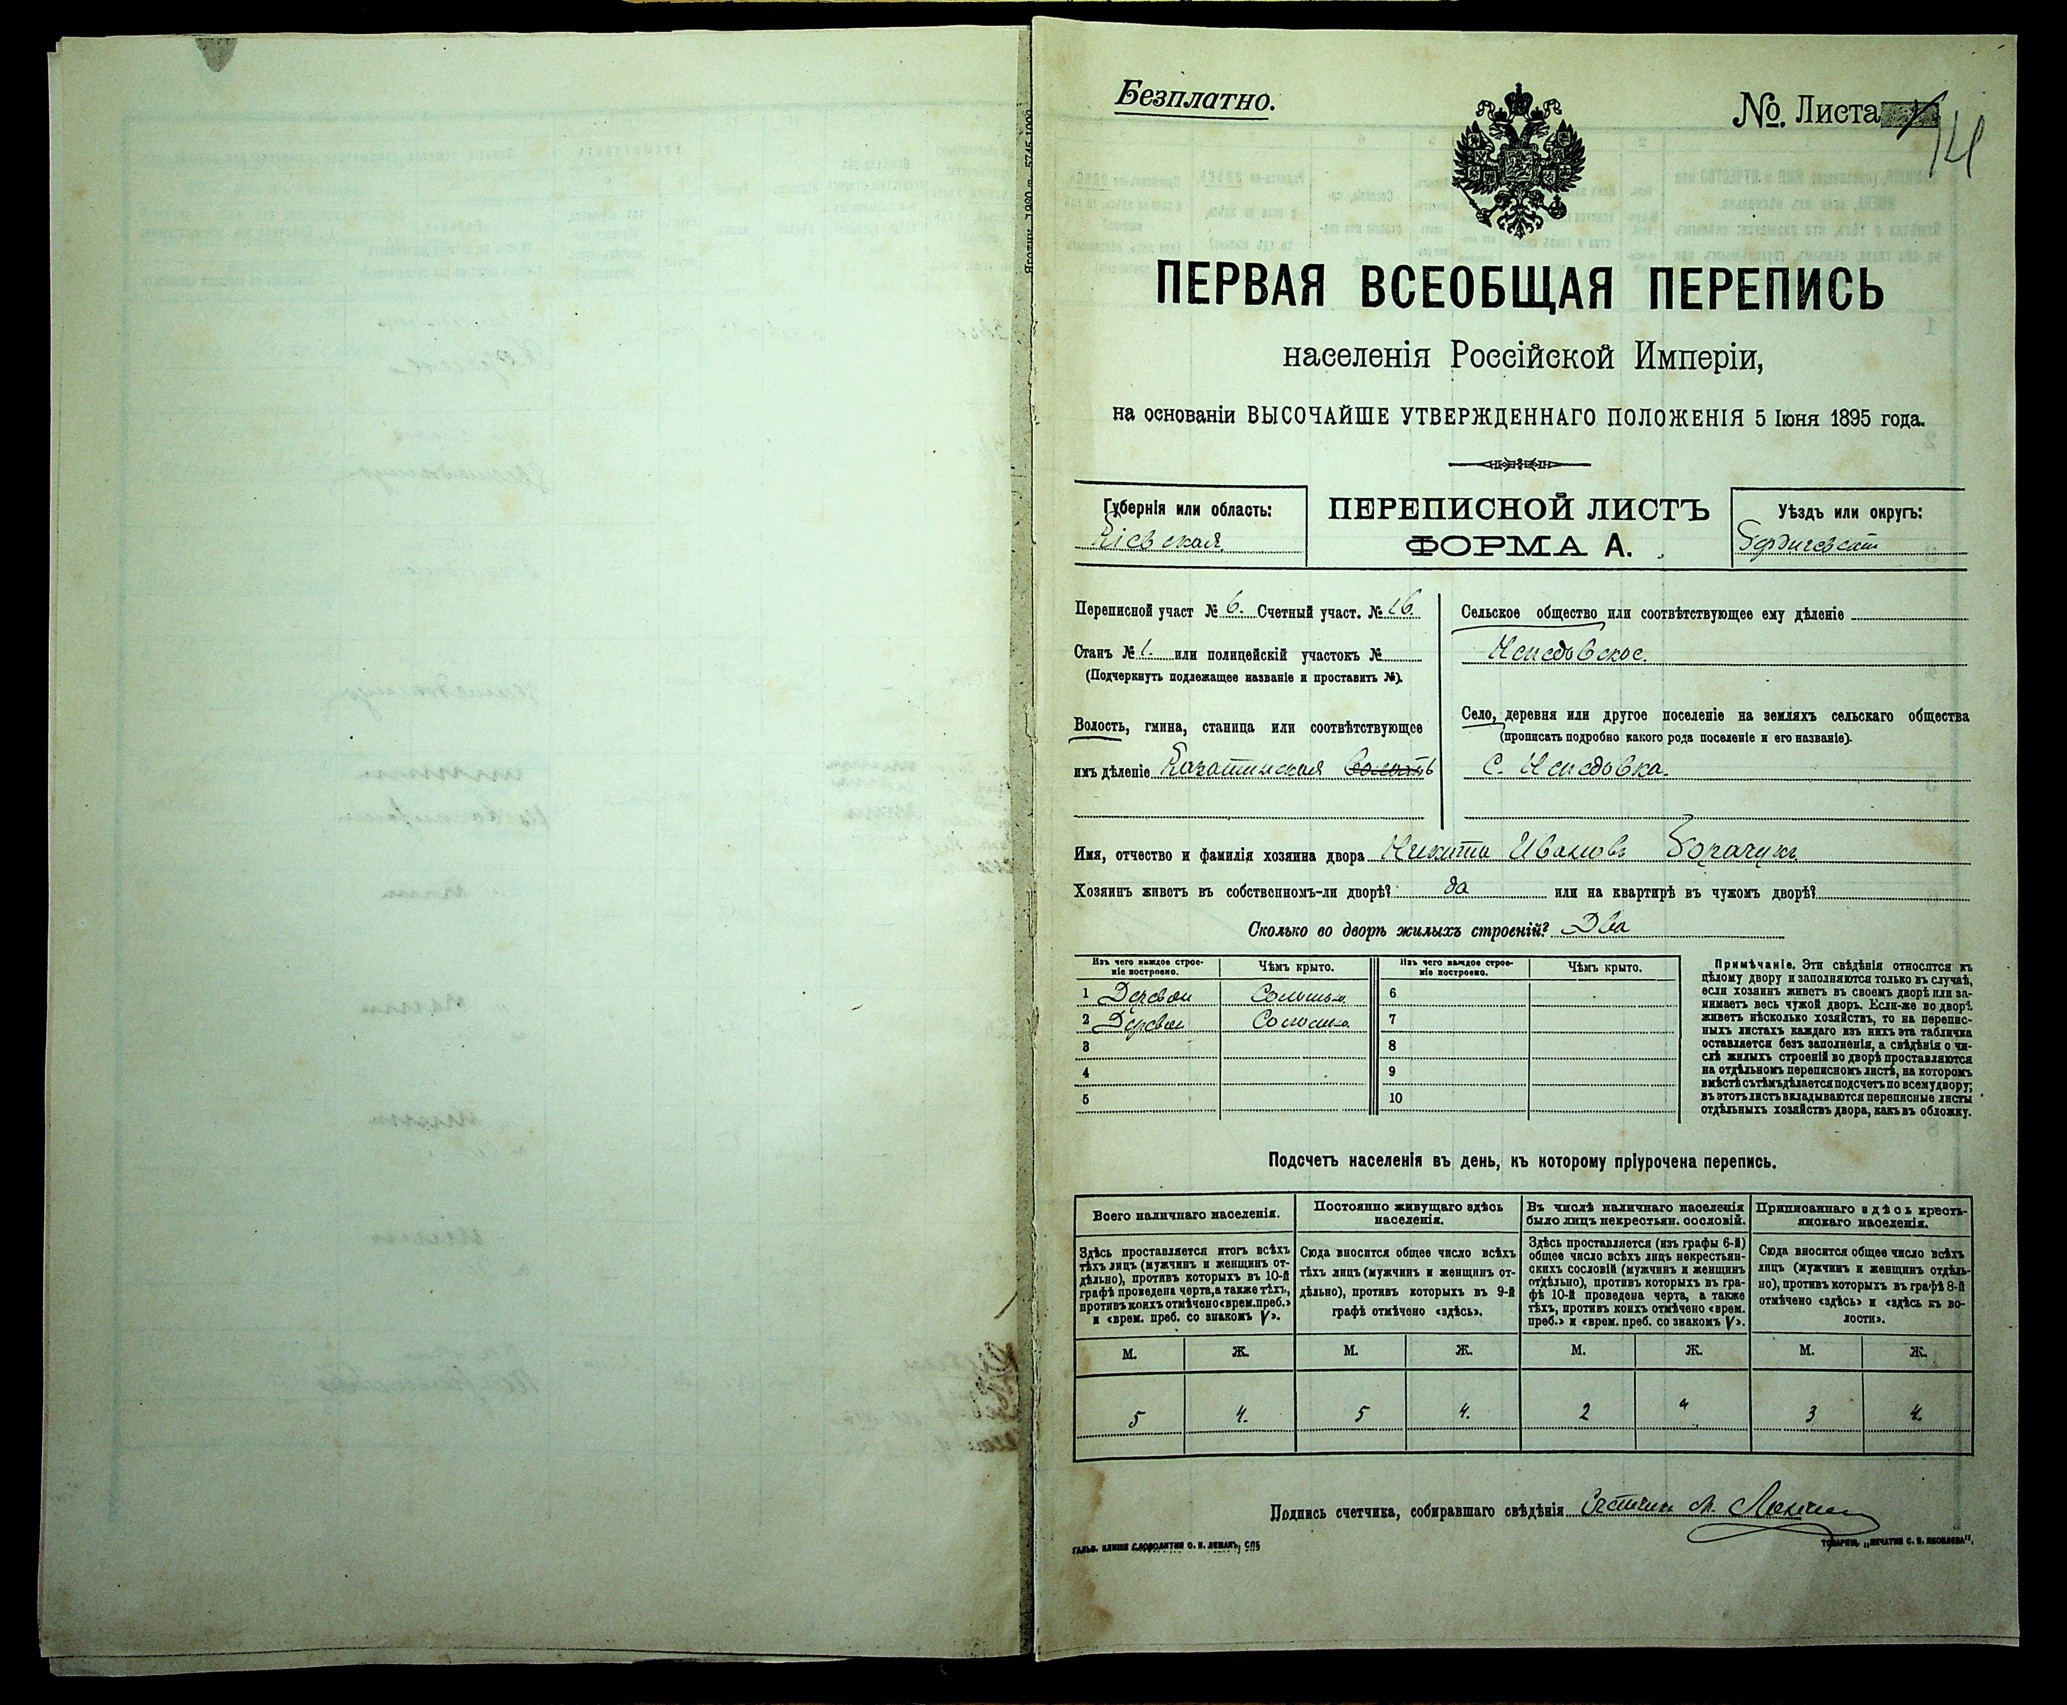 Безплатно.
№ Листа 14
ПЕРВАЯ ВСЕОБЩАЯ ПЕРЕПИСЬ
населенія Россійской Имперіи,
на основаніи ВЫСОЧАЙШЕ УТВЕРЖДЕННАГО ПОЛОЖЕНІЯ 5 Іюня 1895 года.
Губернія или область:
Кіевская
ПЕРЕПИСНОЙ ЛИСТЪ
ФОРМА А.
Уѣздъ или округъ:
Бердичевскій
Переписной участ № 6. Счетный участ. № 16.
Станъ № 1. или полицейскій участокъ №
(Подчеркнуть подлежащее названіе и проставить №).
Волость, гмина, станица или соотвѣтствующее
имъ дѣленіе Казатинская волость
Сельское общество или соотвѣтствующее ему дѣленіе
Село, деревня или другое поселеніе на земляхъ сельскаго общества
(прописать подробно какого рода поселеніе и его названіе).
С.
Имя, отчество и фамилія хозяина двора Никита Ивановъ
Хозяинъ живетъ въ собственномъ-ли дворѣ? да или на квартирѣ въ чужомъ дворѣ?
Сколько во дворѣ жилыхъ строеній? Два
Изъ чего каждое строеніе построено.
Чѣмъ крыто.
Изъ чего каждое строеніе построено.
Чѣмъ крыто.
1 Дерева Соломы 6
2 Дерева Соломы 7
3 8
4 9
5 10
Примѣчаніе. Эти свѣдѣнія относятся къ
цѣлому двору и заполняются только въ случаѣ,
если хозяинъ живетъ въ своемъ дворѣ или за-
нимаетъ весь чужой дворъ. Если-же во дворѣ
живетъ нѣсколько хозяйствъ, то на перепис-
ныхъ листахъ каждаго изъ нихъ эта табличка
оставляется безъ заполненія, а свѣдѣнія о чи-
слѣ жилыхъ строеній во дворѣ проставляются
на отдѣльномъ переписномъ листѣ, на которомъ
вмѣстѣ съ тѣмъ дѣлается подсчетъ по всему двору;
въ этотъ листъ вкладываются переписные листы
отдѣльныхъ хозяйствъ двора, какъ въ обложку.
Подсчетъ населенія въ день, къ которому пріурочена перепись.
Всего наличнаго населенія.
Здѣсь проставляется итогъ всѣхъ
тѣхъ лицъ (мужчинъ и женщинъ от-
дѣльно), противъ которыхъ въ 10-й
графѣ проведена черта, а также тѣхъ,
противъ коихъ отмѣчено «врем. преб.»
и «врем. преб. со знакомъ V».
Постоянно живущаго здѣсь
населенія.
Сюда вносится общее число всѣхъ
тѣхъ лицъ (мужчинъ и женщинъ от-
дѣльно), противъ которыхъ въ 9-й
графѣ отмѣчено «здѣсь».
Въ числѣ наличнаго населенія
было лицъ некрестьян. сословій.
Здѣсь проставляется (изъ графы 6-й)
общее число всѣхъ лицъ некрестьян-
скихъ сословій (мужчинъ и женщинъ
отдѣльно), противъ которыхъ въ гра-
фѣ 10-й проведена черта, а также
тѣхъ, противъ коихъ отмѣчено «врем.
преб.» и «врем. преб. со знакомъ V».
Приписаннаго здѣсь кресть-
янскаго населенія.
Сюда вносится общее число всѣхъ
лицъ (мужчинъ и женщинъ отдѣль-
но), противъ которыхъ въ графѣ 8-й
отмѣчено «здѣсь» и «здѣсь къ во-
лости».
М. Ж. М. Ж. М. Ж. М. Ж.
5 4. 5 4. 2 " 3 4.
Подпись счетчика, собиравшаго свѣдѣнія
ГАЛЬВ. КЛИШЕ СЛОВОЛИТНИ О. И. ЛЕМАНЪ, СПБ
ТОВАРИЩ. „ПЕЧАТНЯ С. П. ЯКОВЛЕВА".